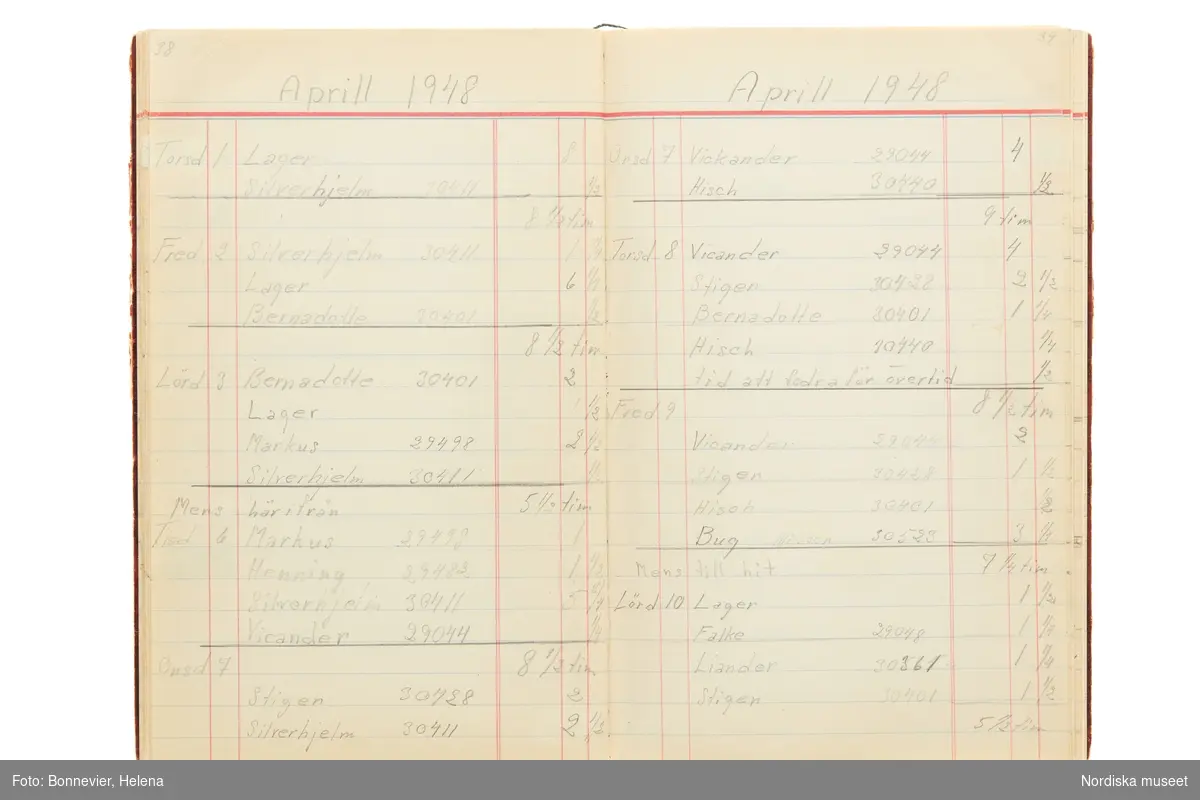 38
Aprill 1948
Torsd 1 Lager 8
Silverhjelm 30411 1/2
8 1/2 tim
Fred 2 Silverhjelm 30411 1
Lager 6
Bernadotte 30401 1/2
8 1/2 tim
Lörd 3 Bernadotte 30401 2
Lager 1/2
Markus 29498 2 1/2
Silverhjelm 30411 1/2
5 1/2 tim
Mens härifrån
Tisd 6 Markus 29498 1
Henning 29482 1 1/2
Silverhjelm 30411 5
Vicander 29044
8 1/2 tim
Onsd 7
Stigen 30428 2
Silverhjelm 30411 2 1/2
39
Aprill 1948
Onsd 7 Vickander 29044 4
Hisch 30440 1/2
9 tim
Torsd 8 Vicander 29044 4
Stigen 30428 2 1/2
Bernadotte 30401 1 1/4
Hisch 30440 1/4
tid att fodra för övertid 1/2
8 1/2 tim
Fred 9
Vicander 29044 2
Stigen 30428 1 1/2
Hisch 30401 1/2
Bug 30523 3
7 1/4 tim
Mens till hit
Lörd 10 Lager 1 1/2
Falke 29048 1 1/4
Liander 30361 1 1/4
Stigen 30401 1 1/2
5 1/2 tim
Foto: Bonnevier, Helena
Nordiska museet